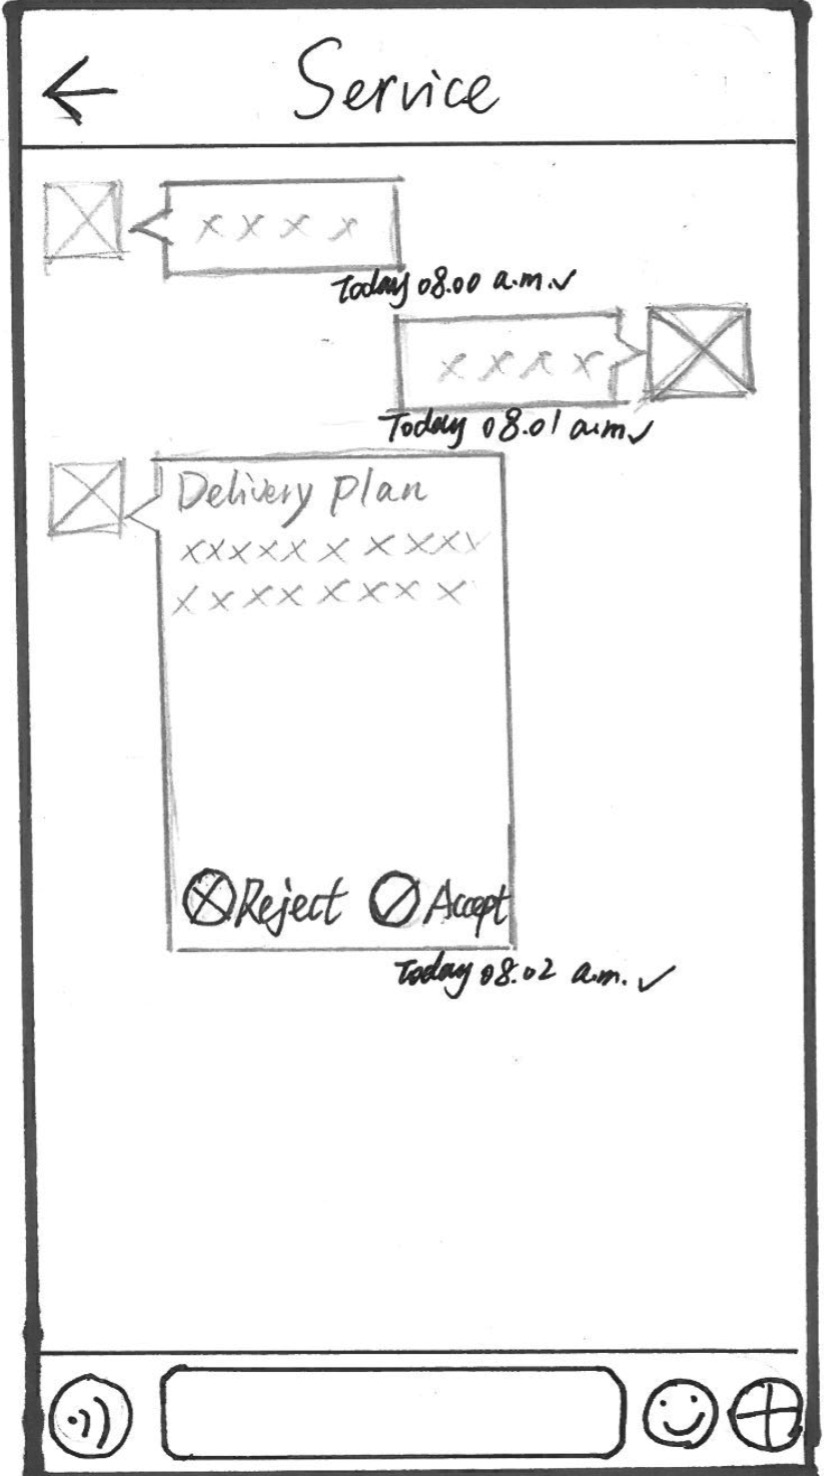 Service
x x x x
Today 08.00 a.m.✓
x x x x
Today 08.01 a.m✓
Delivery Plan
xxxxx x x xxx
x x xx x xx x
Reject Accept
Today 08.02 a.m. ✓